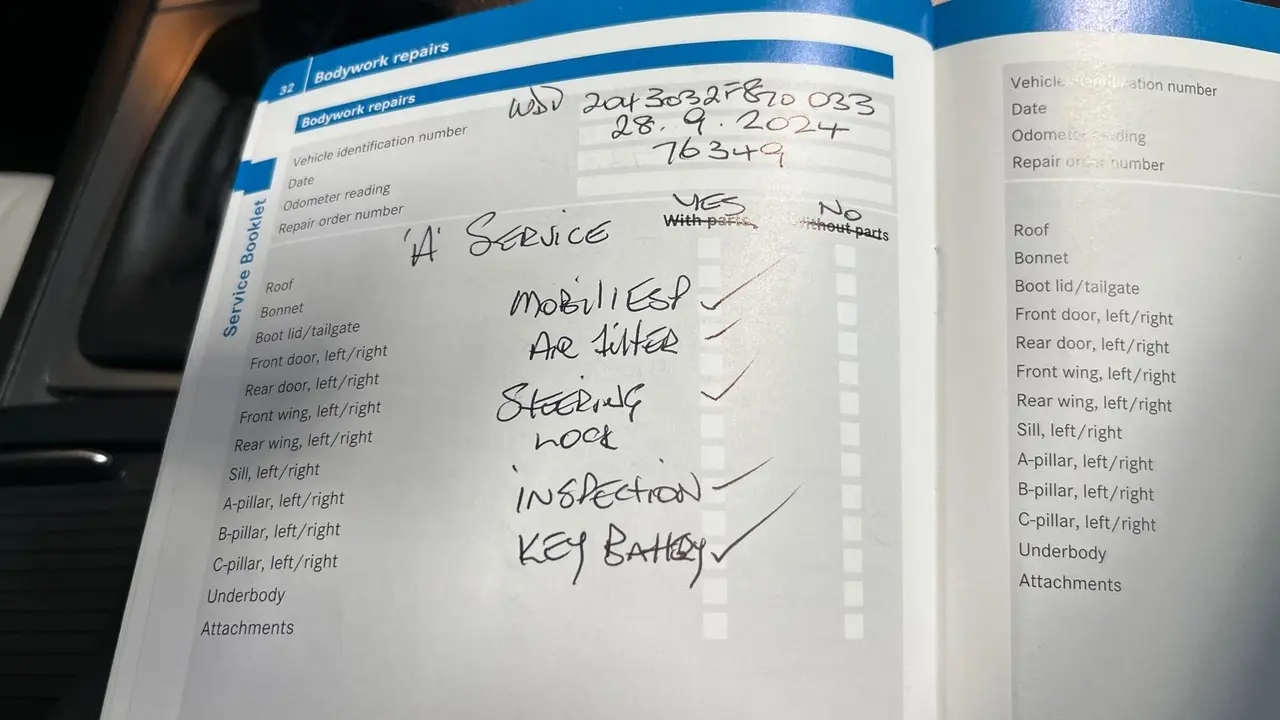 32 Bodywork repairs
Bodywork repairs
Vehicle identification number WDD 2043032F870 033
Date 28.9.2024
Odometer reading 76349
Repair order number
YES NO
With parts Without parts
'A' SERVICE
Service Booklet
Roof
Bonnet MOBIL1 ESP ✓
Boot lid/tailgate
Front door, left/right AIR FILTER ✓
Rear door, left/right
Front wing, left/right STEERING ✓
Rear wing, left/right LOCK
Sill, left/right
A-pillar, left/right INSPECTION ✓
B-pillar, left/right
C-pillar, left/right KEY BATTERY ✓
Underbody
Attachments
Vehicle identification number
Date
Odometer reading
Repair order number
Roof
Bonnet
Boot lid/tailgate
Front door, left/right
Rear door, left/right
Front wing, left/right
Rear wing, left/right
Sill, left/right
A-pillar, left/right
B-pillar, left/right
C-pillar, left/right
Underbody
Attachments